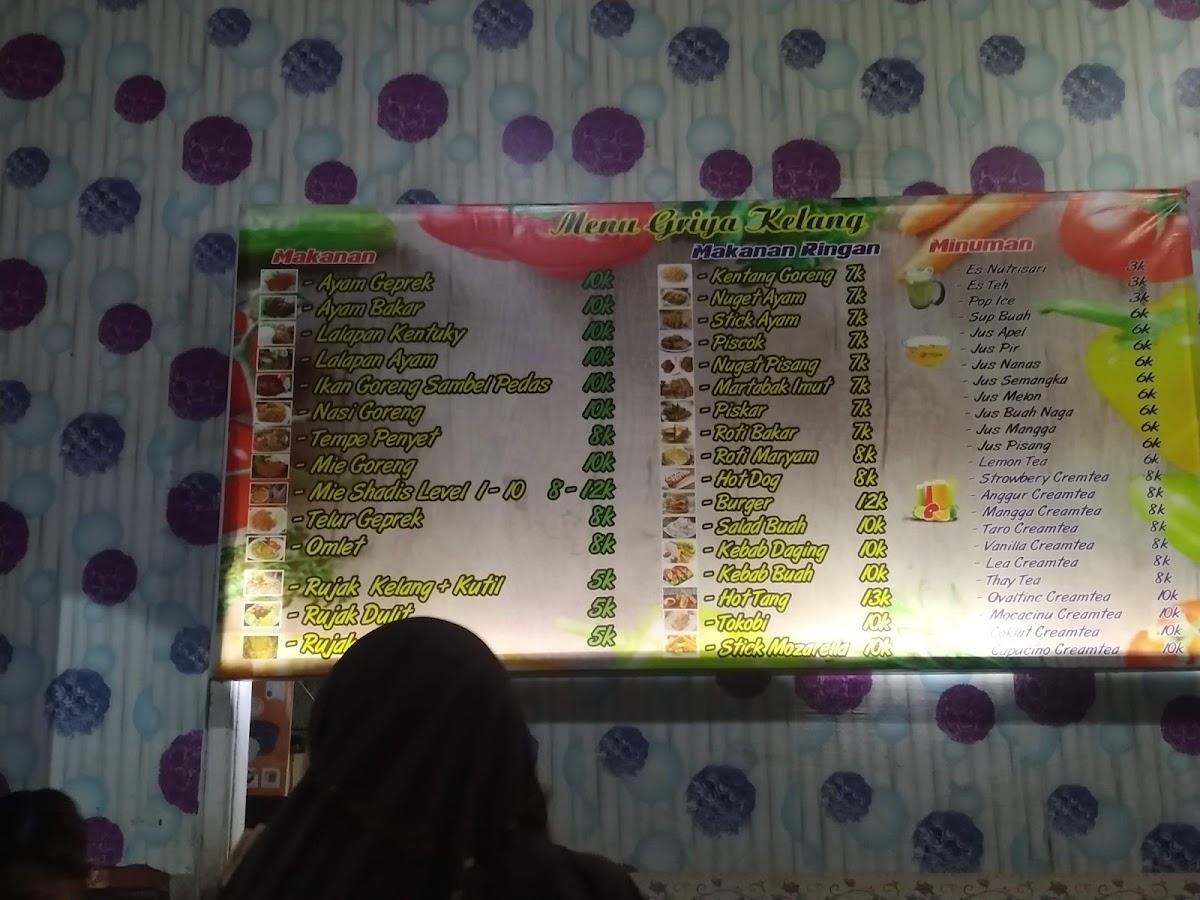 Menu Griya Kelang
Makanan
- Ayam Geprek 10k
- Ayam Bakar 10k
- Lalapan Kentuky 10k
- Lalapan Ayam 10k
- Ikan Goreng Sambel Pedas 10k
- Nasi Goreng 10k
- Tempe Penyet 8k
- Mie Goreng 10k
- Mie Shadis Level 1 - 10 8 - 12k
- Telur Geprek 8k
- Omlet 8k
- Rujak Kelang + Kutil 5k
- Rujak Dulit 5k
- Rujak 5k
Makanan Ringan
- Kentang Goreng 7k
- Nuget Ayam 7k
- Stick Ayam 7k
- Piscok 7k
- Nuget Pisang 7k
- Martabak Imut 7k
- Piskar 7k
- Roti Bakar 7k
- Roti Maryam 8k
- Hot Dog 8k
- Burger 12k
- Salad Buah 10k
- Kebab Daging 10k
- Kebab Buah 10k
- Hot Tang 13k
- Tokobi 10k
- Stick Mozarella 10k
Minuman
- Es Nutrisari 3k
- Es Teh 3k
- Pop Ice 3k
- Sup Buah 6k
- Jus Apel 6k
- Jus Pir 6k
- Jus Nanas 6k
- Jus Semangka 6k
- Jus Melon 6k
- Jus Buah Naga 6k
- Jus Mangga 6k
- Jus Pisang 6k
- Lemon Tea 6k
- Strowbery Cremtea 8k
- Anggur Creamtea 8k
- Mangga Creamtea 8k
- Taro Creamtea 8k
- Vanilla Creamtea 8k
- Lea Creamtea 8k
- Thay Tea 8k
- Ovaltinc Creamtea 10k
- Mocacinu Creamtea 10k
- Coklat Creamtea 10k
- Capucino Creamtea 10k